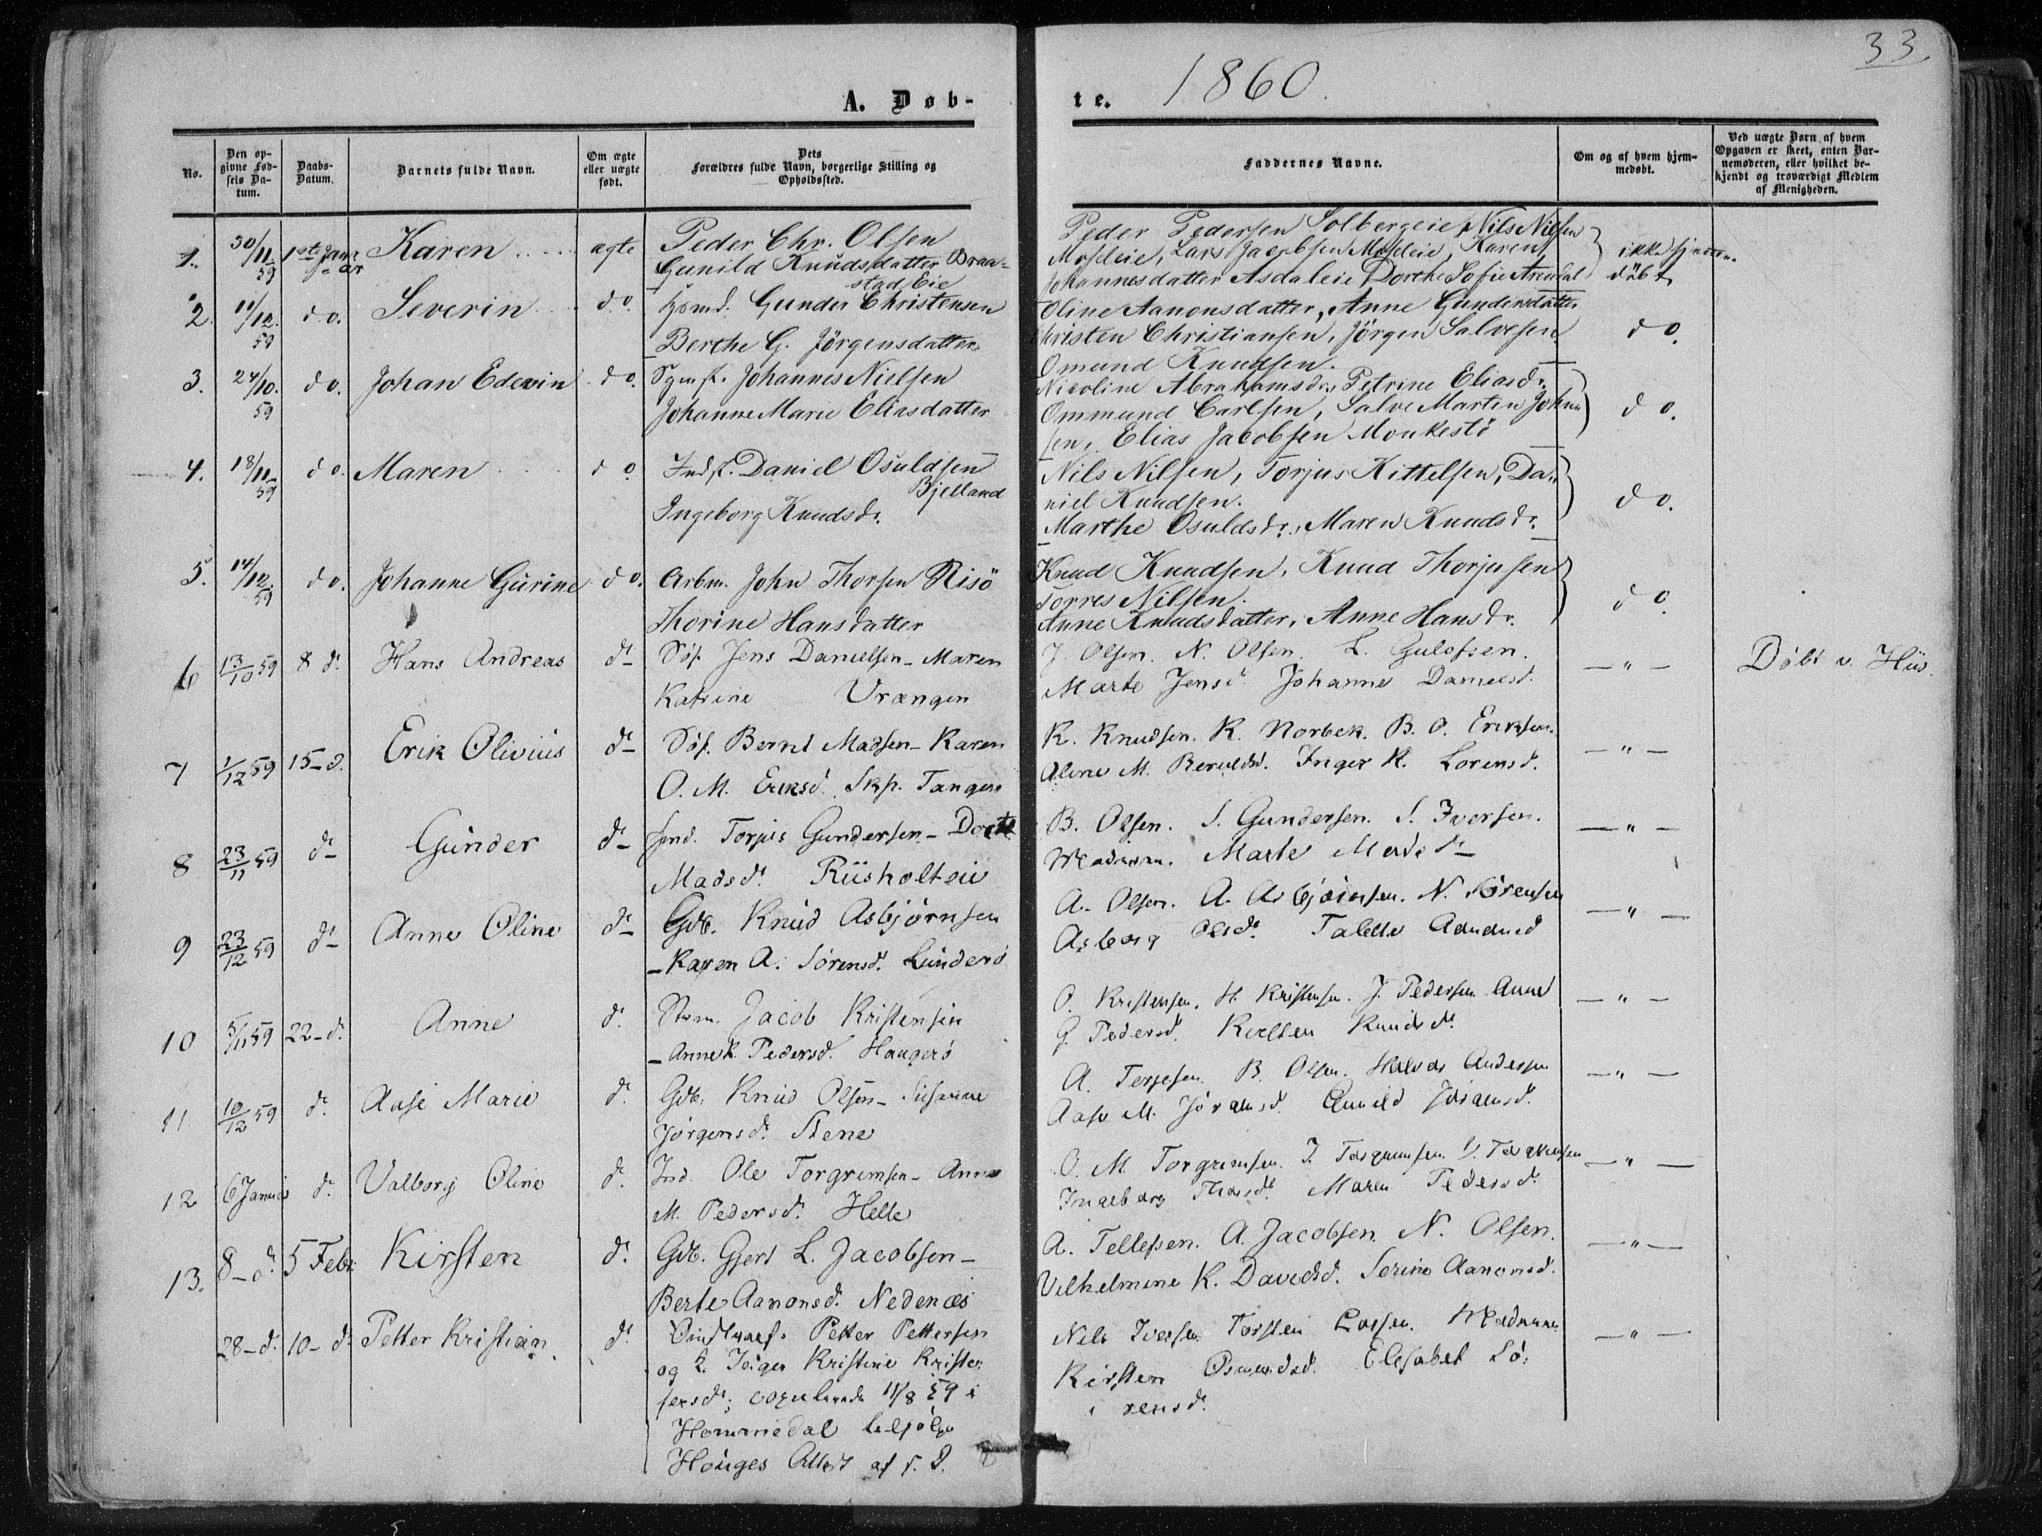 33
A. Døb-
te.
1860.
No.
Den op-
givne Fød-
sels Da-
tum.
Daabs-
Datum.
Barnets fulde Navn.
Om ægte
eller uægte
født.
Dets
Forældres fulde Navn, borgerlige Stilling og
Opholdssted.
Faddernes Navne.
Om og af hvem hjem-
medøbt.
Ved uægte Børn af hvem
Opgaven er skeet, enten Bar-
nemoderen, eller hvilket be-
kjendt og troværdigt Medlem
af Menigheden.
1. 30/11 59 1ste Januar Karen ægte Peder Chr. Olsen
Gunild Knudsdatter Braa-
stad Eie
Peder Pedersen Solbergeie, Nils Nilsen
Moseleie, Lars Jacobsen Moseleie, Karen
Johannesdatter Asdaleie Dorthe Sofie Arendal
ikke hjemme-
døbt
2. 11/12. 59 do. Severin do. Gunder Christensen
Berthe G. Jørgensdatter
Oline Aanonsdatter, Anne Gundersdatter
Christen Christiansen, Jørgen Salvesen
Omund Knudsen.
do.
3. 24/10. 59 do. Johan Edevin do. Johannes Nielsen
Johanne Marie Eliasdatter
Nicoline Abrahamsdr, Petrine Eliasdr.
Ommund Carlsen, Salve Marten John-
sen, Elias Jacobsen Monkestø
do.
4. 18/11. 59 do. Maren do Indst. Daniel Osuldsen
Bjelland
Ingeborg Knudsdr.
Nils Nilsen, Torjus Kittelsen, Da-
niel Knudsen.
Marthe Osuldsdr., Maren Knudsdr.
do.
5. 14/12. 59 do. Johanne Gurine do. Arbm. John Thorsen Risö
Thorine Hansdatter
Knud Knudsen, Knud Thorjusen
Torres Nilsen.
Anne Knudsdatter, Anne Hansdr.
do.
6 13/10 59 8 d. Hans Andreas d- Søf. Jens Danielsen- Maren
Katrine Vrangen
J. Olsen. N. Olsen. L. Gulofsen.
Marte Jensd. Johanne Danielsd.
— " —
Døbt v. Hus.
7 1/12 59 15-d. Erik Olivius d- Søf. Bernt Madsen- Karen
O. M. Eriksd. Skp. Tangen
K. Knudsen. K. Norbek. B. O. Eriksen.
Aline M. Beruldsd. Inger K. Lorensd.
— " —
8 23/11 59 d- Gunder d- Ind. Torjus Gundersen- Dorte
Madsd. Riisholteie
B. Olsen. S. Gundersen. S. Iversen.
Marte Madsd-
— " —
9 23/12 59 d- Anne Oline d- Gdb. Knud Asbjørnsen
-Karen A. Sørensd. Lunderö
A. Olsen. A. Asbjørnsen. N. Sørensen
Asborg Olsd. Talette
— " —
10 5/11 59 22-d. Anne d. Jacob Kristensen
-Anne K. Pedersd. Haugerö
O. Kristensen. H. Kristensen. J. Pedersen Anne
G. Pedersd. Kirsten Knudsd.
— " —
11 10/12 59 d. Aase Marie d. Gdb. Knud Olsen- Susanne
Jörgensd. Stene
A. Terjesen. B. Olsen. Halvor Andersen
Aase M. Jörgensd. Gunild Jörgensd.
— " —
12 6 Januar d. Valborg Oline d. Ind. Ole Torgrimsen- Anne
M. Pedersd. Helle
O. M. Torgrimsen. T. Torgrimsen
Ingeborg Thorsd. Maren Pedersd.
— " —
13. 8-d. 5 Febr. Kirsten d. Gdb. Gjert L. Jacobsen-
Berte Aanonsd. Nedenæs
A. Tellefsen. A. Jacobsen N. Olsen.
Vilhelmine K. Davidsd. Serine Aanonsd.
— " —
28-d. 10-d. Petter Kristian. d. Petter Pettersen
og Inger Kristine Krister-
sensd; copulerede 11/8 59 i
Hommedal
Houges Attest af
Nils Iversen Torsten Larsen. Madamme
Kirsten Osmundsd. Elisabet Sö-
rensd.
— " —